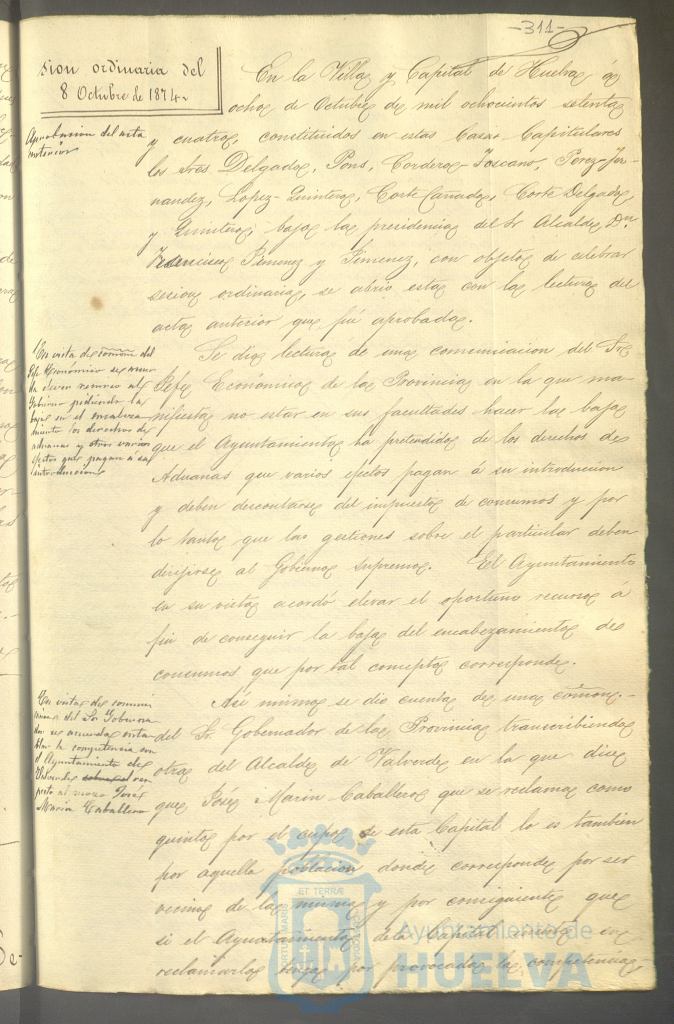 -311-
sion ordinaria del
8 Octubre de 1874.
En la Villa y Capital de Huelva á
ocho de Octubre de mil ochocientos setenta
y cuatro, constituidos en estas Casas Capitulares
los Sres Delgado, Pons, Cordero, Toscano, Perez, Fer-
nandez, Lopez-Quintero, Corte Cañada, Corte Delgado,
y Quintero, bajo la presidencia del Sr Alcalde Dn.
Jimenez y Jimenez, con objeto de celebrar
sesion ordinaria, se abrio esta con la lectura del
acta anterior que fué aprobada.
Aprobacion del acta
anterior
Se dio lectura de una comunicacion del Sr
Jefe Económico de la Provincia en la que ma-
nifiesta no estar en sus facultades hacer la baja
que el Ayuntamiento ha pretendido de los derechos de
Aduanas que varios efectos pagan á su introduccion
y deben descontarse del impuesto de consumos y por
lo tanto que las gestiones sobre el particular deben
dirijirse al Gobierno Supremo. El Ayuntamiento
en su vista acordó elevar el oportuno recurso á
fin de conseguir la baja del encabezamiento de
consumos que por tal concepto corresponde.
En vista de comon del
Jefe Económico se acuer
da elevar recurso al
Gobierno pidiendo la
baja en el encabeza
miento los derechos de
aduanas y otros varios
efectos que pagan á su
introduccion
Asi mismo se dio cuenta de una comon.-
del Sr. Gobernador de la Provincia transcribiendo
otra del Alcalde de Valverde en la que dice
que José Marin Caballero que se reclama como
quinto por el cupo de esta Capital lo es tambien
por aquella poblacion donde corresponde por ser
vecino de la misma y por consiguiente que
si el Ayuntamiento de la Capital insiste en
reclamarlo tenga por provocada la competencia
En vista de comuni
cacion del Sr Goberna
dor se acuerda enta
blar la competencia con
el Ayuntamiento de
Valverde res
pecto al mozo José
Maria Caballero
ET TERRÆ
PORTUS MARIS
CUSTODIA
Ayuntamiento de
HUELVA